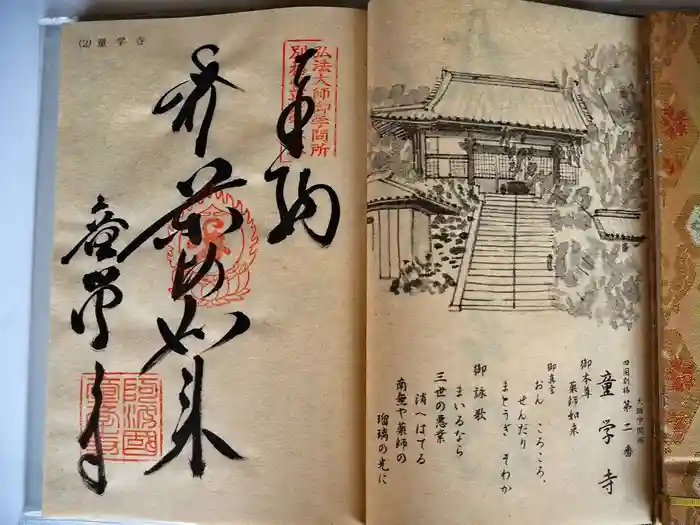 大師学問所
四国別格 第二番
童学寺
御本尊
薬師如来
御真言
おん ころころ、
せんだり
まとうぎ そわか
御詠歌
まいるなら
三世の悪業
消へはてる
南無や薬師の
瑠璃の光に
(2) 童学寺
奉納
弘法大師御学問所
薬師如来
童学寺